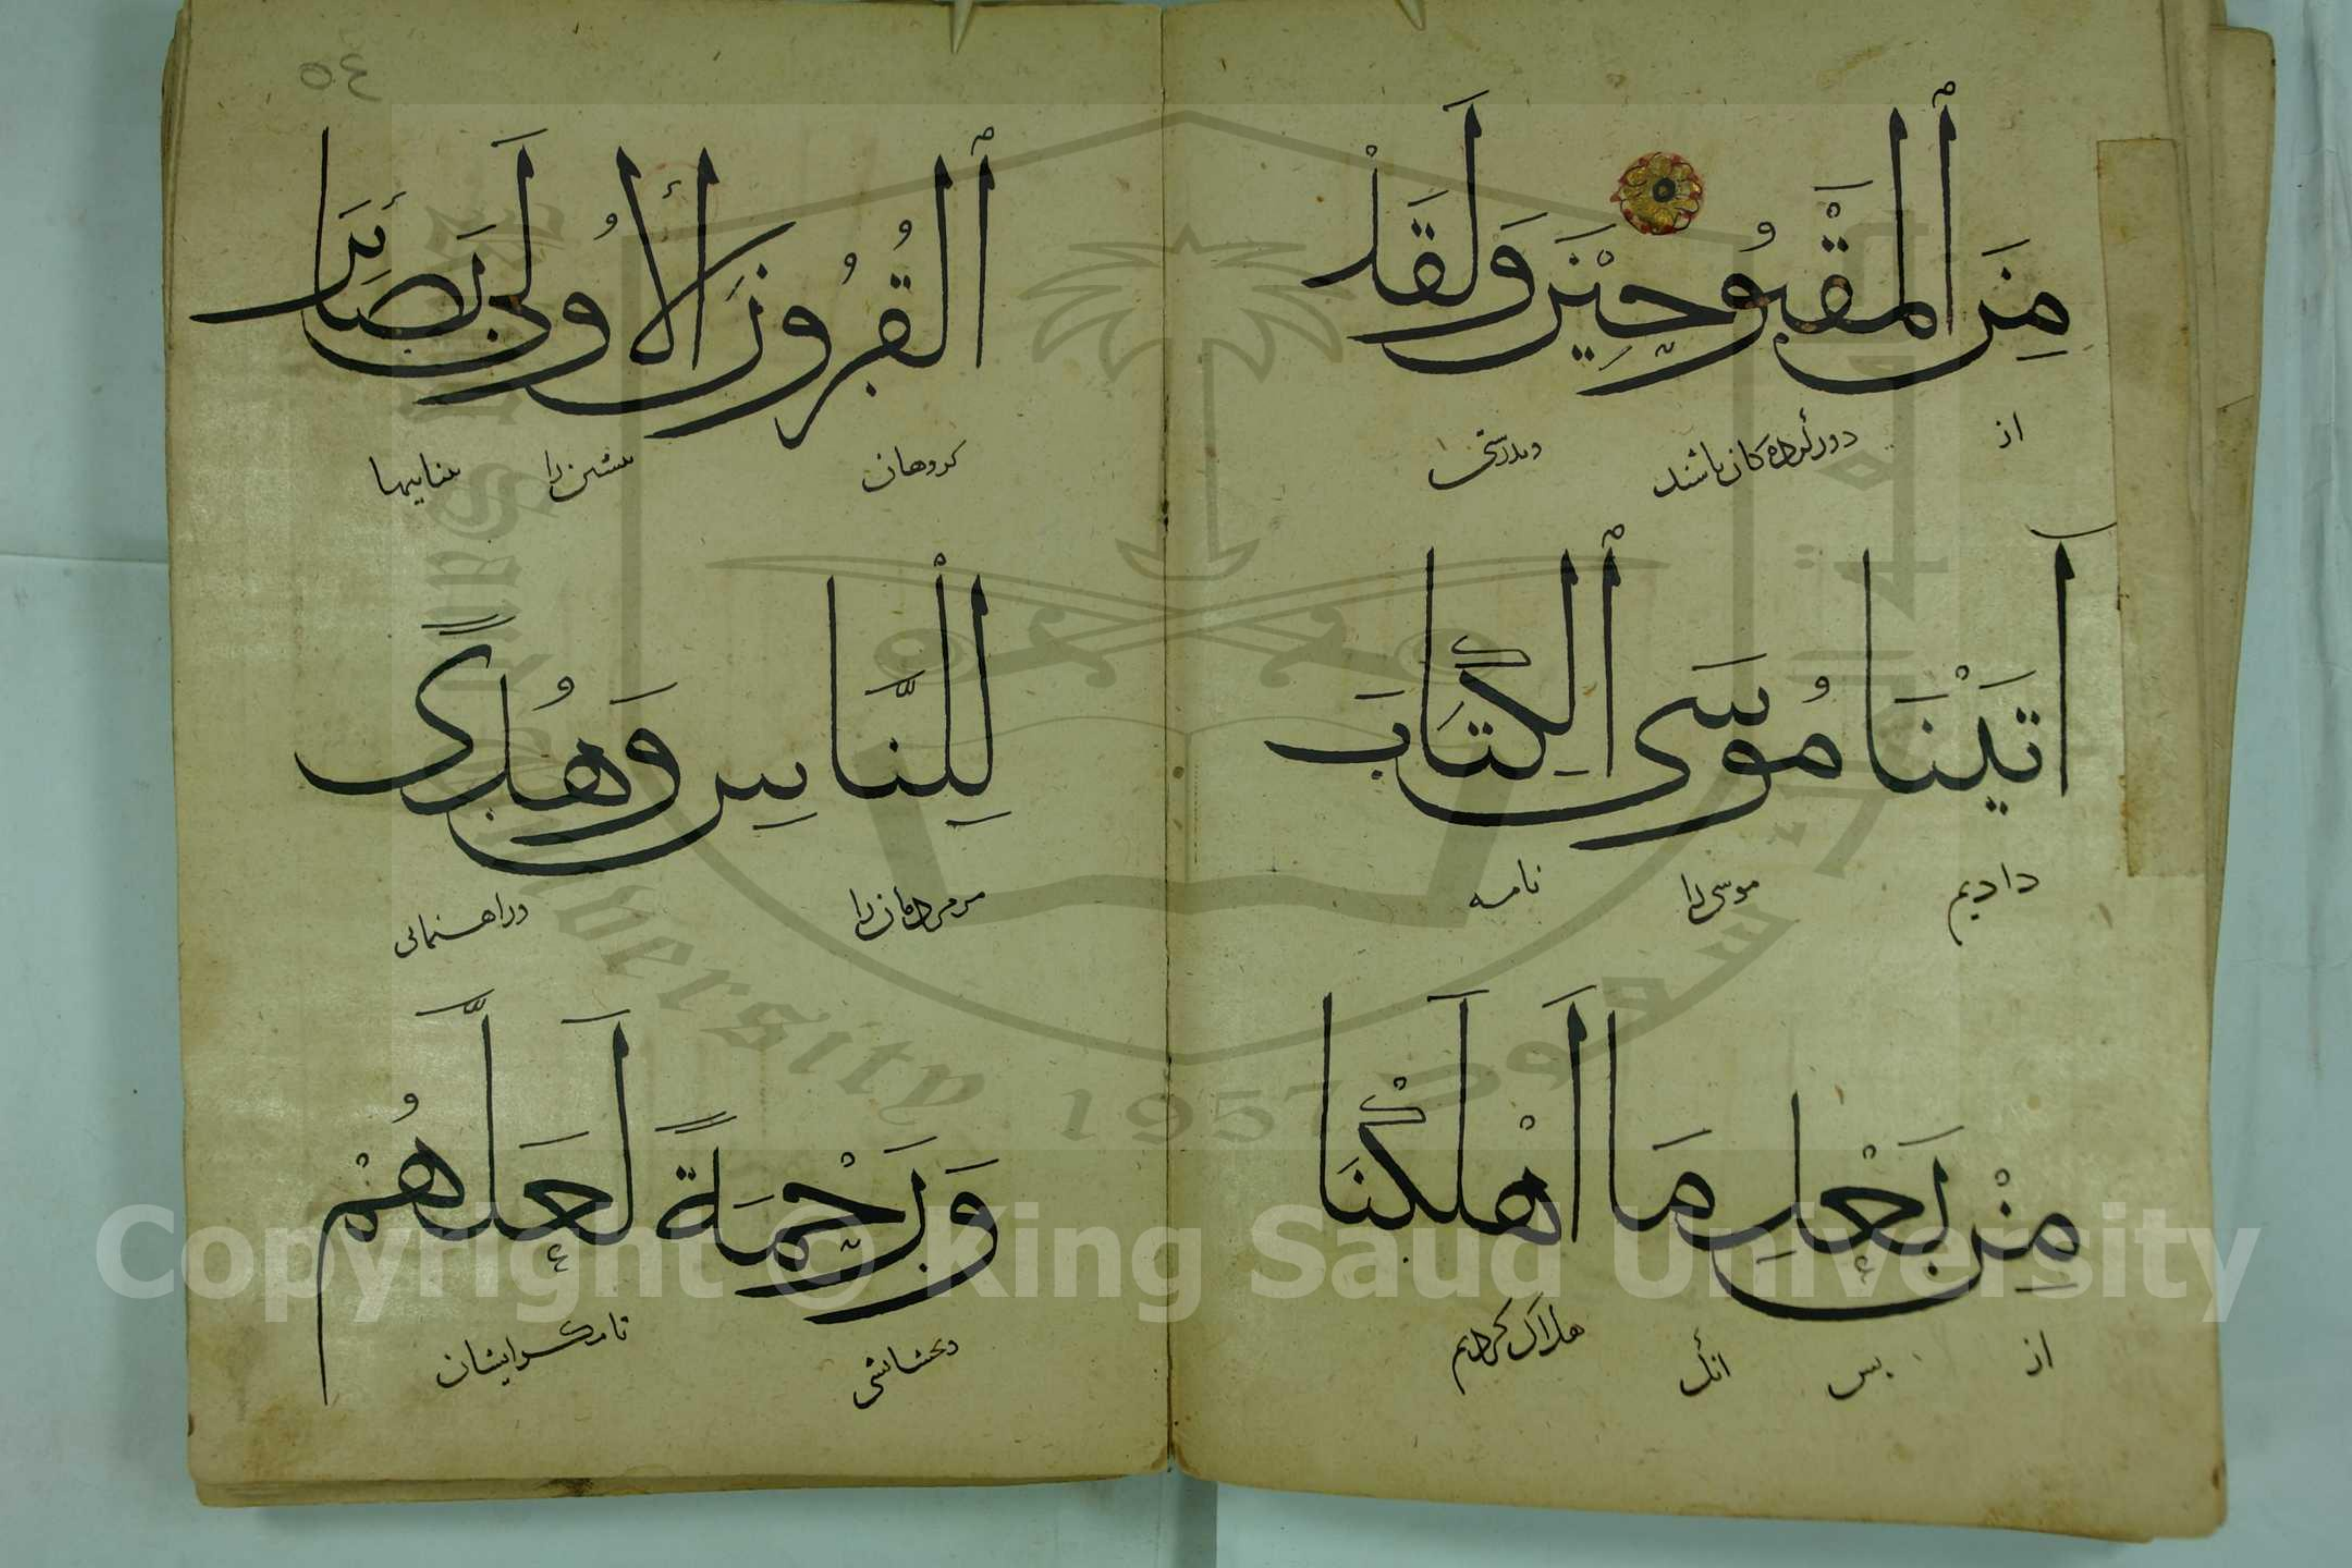 مِنَ ٱلْمَقْبُوحِيْنَ وَلَقَدْ
از دور کرده کان باشند
آتَيْنَا مُوسَى ٱلْكِتَابَ
دادیم موسی را نامه
مِنْ بَعْدِ مَا أَهْلَكْنَا
از بس انک هلاک کردیم
٥٤
ٱلْقُرُونَ الْأُولَى بَصَائِرَ
کروهان بیشین را بیناییها
لِلنَّاسِ وَهُدًى
مر مردمان را وراهنمائی
وَرَحْمَةً لَعَلَّهُمْ
وبخشایشی تا مکر ایشان
Copyright © King Saud University
King Saud University 1957